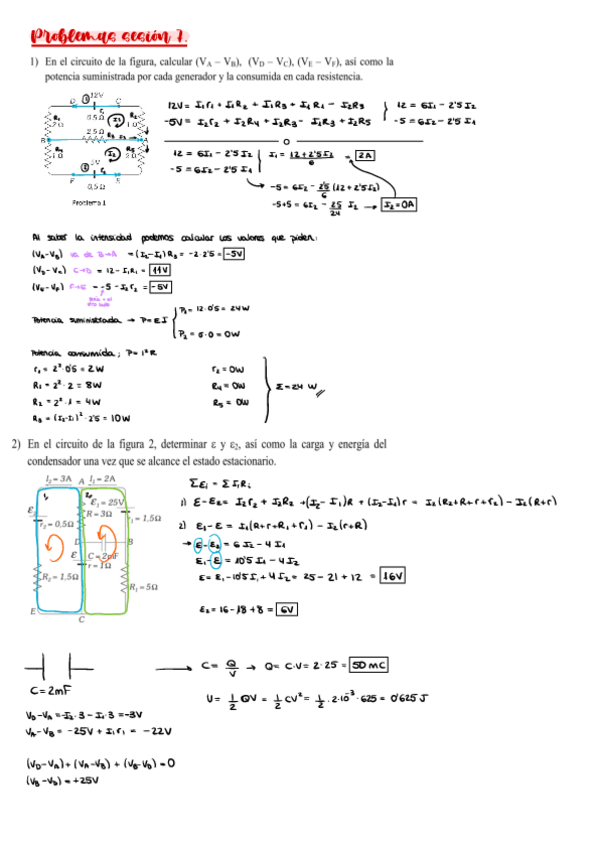 Problemas sesión 7.
1) En el circuito de la figura, calcular (VA – VB), (VD – VC), (VE – VF), así como la
potencia suministrada por cada generador y la consumida en cada resistencia.
12V = I1r1 + I1R2 + I1R3 + I1R1 - I2R3
12 = 6I1 - 2'5 I2
-5V = I2r2 + I2R4 + I2R3 - I1R3 + I2R5
-5 = 6I2 - 2'5 I1
12 = 6I1 - 2'5 I2
I1 = 12+2'5I2 / 6 = 2A
-5 = 6I2 - 2'5 I1
-5 = 6I2 - 2'5/6 (12+2'5I2)
-5+5 = 6I2 - 25/24 I2 → I2=0A
12V
D
C
0.5Ω
R1
2Ω
R2
1Ω
2.5Ω
R3
I1
B
A
R4
1Ω
I2
R5
2Ω
5V
F
E
0,5Ω
Problema 1
Al saber la intensidad podemos calcular los valores que piden:
(VA-VB) va de B→A = (I2-I1) R3 = -2·2'5 = -5V
(VD-VC) C→D = 12 - I1R1 = 11V
(VE-VF) F→E = -5 - I2 r2 = -5V
Potencia suministrada → P=EI
P1 = 12·0'5 = 24W
P2 = 5·0 = 0W
Potencia consumida; P= I²R
r1 = 2²·0'5 = 2W
r2 = 0W
R1 = 2²·2 = 8W
R4 = 0W
Σ = 24 W
R2 = 2²·1 = 4W
R5 = 0W
R3 = (I2-I1)²·2'5 = 10W
2) En el circuito de la figura 2, determinar ε y ε2, así como la carga y energía del
condensador una vez que se alcance el estado estacionario.
I2 = 3A A I1 = 2A
ε1 = 25V
R = 3Ω
r1 = 1,5Ω
ε2
r2 = 0,5Ω
D
B
ε
C = 2mF
r = 1Ω
R2 = 1,5Ω
R1 = 5Ω
E
C
ΣEi = Σ IiRi
1) E-E2 = I2r2 + I2R2 + (I2-I1)R + (I2-I1)r = I2(R2+R+r+r2) - I2(R+r)
2) E1-E = I1(R+r+R1+r1) - I2(r+R)
→ E-E2 = 6I2 - 4I1
E1-E = 10'5 I1 - 4I2
E = E1-10'5 I1 + 4I2 = 25 - 21 + 12 = 16V
E2 = 16 - 18 + 8 = 6V
C=2mF
C = Q/V → Q= C·V = 2·25 = 50 mC
U = 1/2 QV = 1/2 CV² = 1/2 · 2·10⁻³ · 625 = 0'625 J
VD-VA = -I2·3 - I1·3 = -3V
VA-VB = -25V + I1r1 = -22V
(VD-VA) + (VA-VB) + (VB-VD) = 0
(VB-VD) = +25V